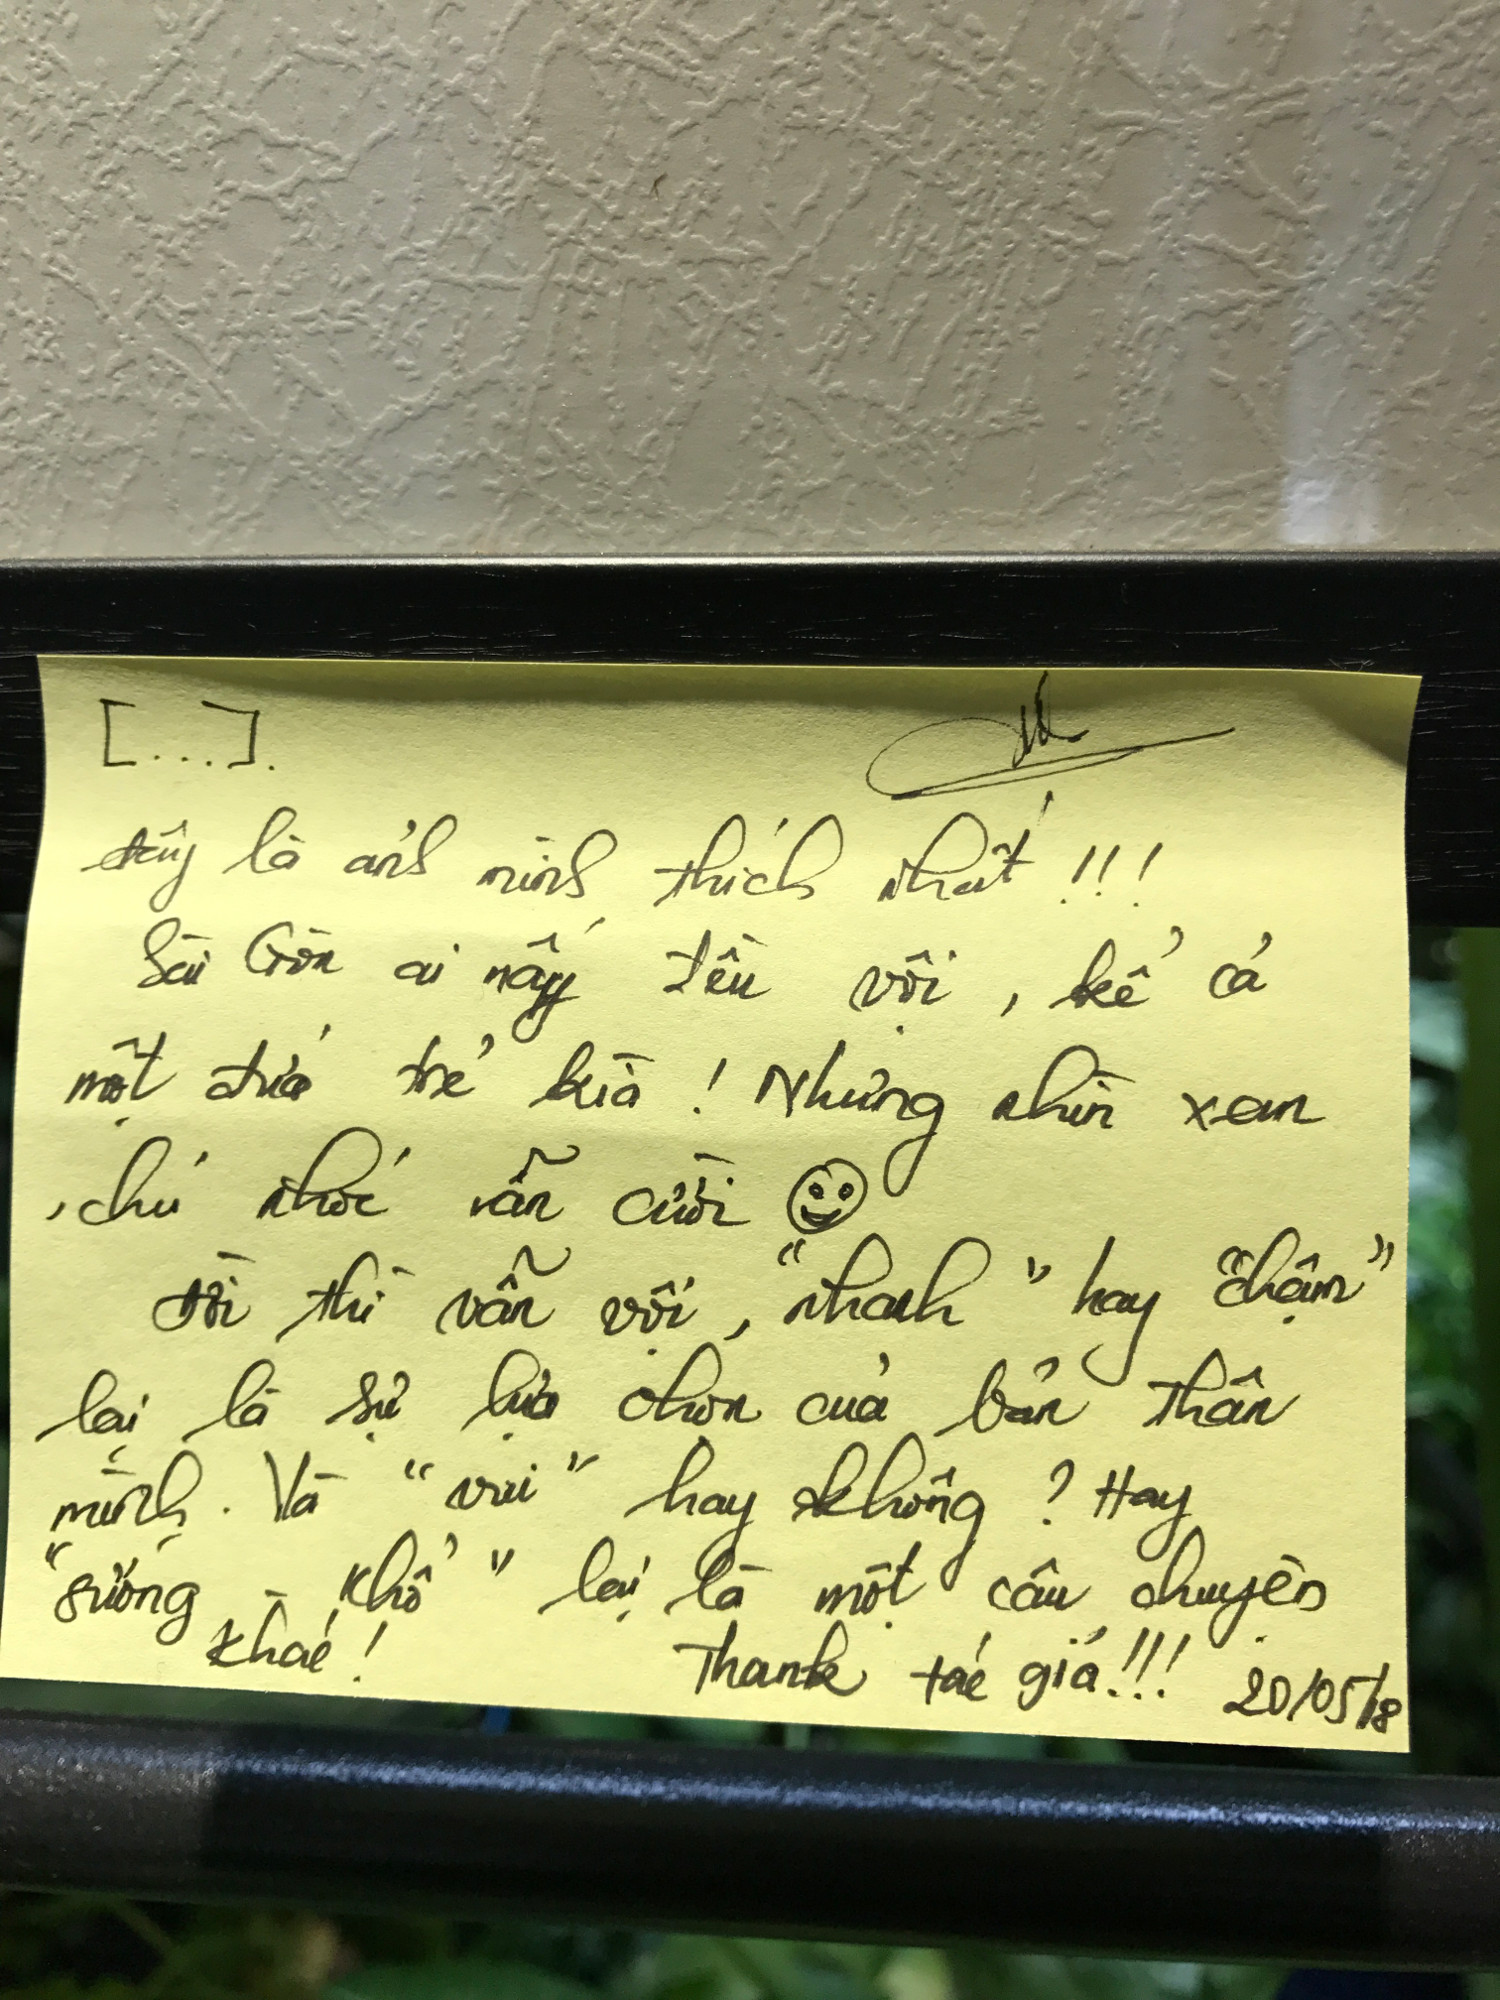 [...].
đây là ảnh mình thích nhất!!!
Sài Gòn ai nấy đều vội, kể cả
một đứa trẻ kia! Nhưng nhìn xem
, chú nhóc vẫn cười
đời thì vẫn vội, "nhanh" hay "chậm"
lại là sự lựa chọn của bản thân
mình. Và "vui" hay không? Hay
"sướng khổ" lại là một câu chuyện
khác! Thank tác giả!!! 20/05/18